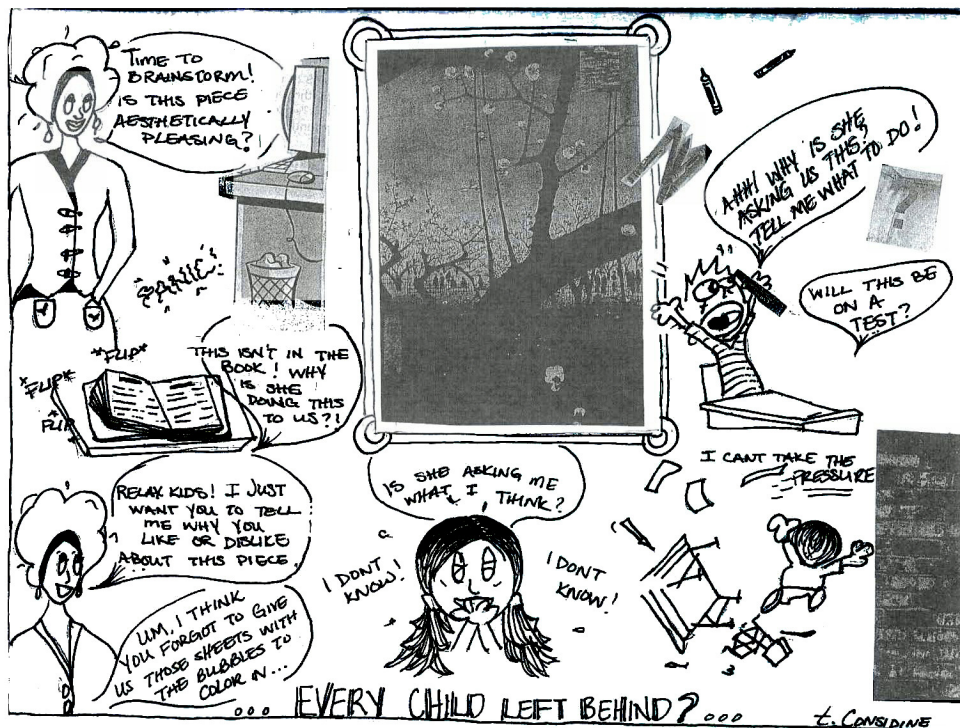 TIME TO
BRAINSTORM!
IS THIS PIECE
AESTHETICALLY
PLEASING?
*PANIC*
*FLIP*
*FLIP*
*FLIP
THIS ISN'T IN THE
BOOK! WHY
IS SHE
DOING THIS
TO US?!
AHH! WHY IS SHE
ASKING US THIS?
TELL ME WHAT TO DO!
?
WILL THIS BE
ON A
TEST?
RELAX KIDS! I JUST
WANT YOU TO TELL
ME WHY YOU
LIKE OR DISLIKE
ABOUT THIS PIECE.
UM, I THINK
YOU FORGOT TO GIVE
US THOSE SHEETS WITH
THE BUBBLES TO
COLOR IN...
IS SHE ASKING ME
WHAT I THINK?
I DONT
KNOW!
I DONT
KNOW!
I CANT TAKE THE
PRESSURE
... EVERY CHILD LEFT BEHIND? ...
t. CONSIDINE